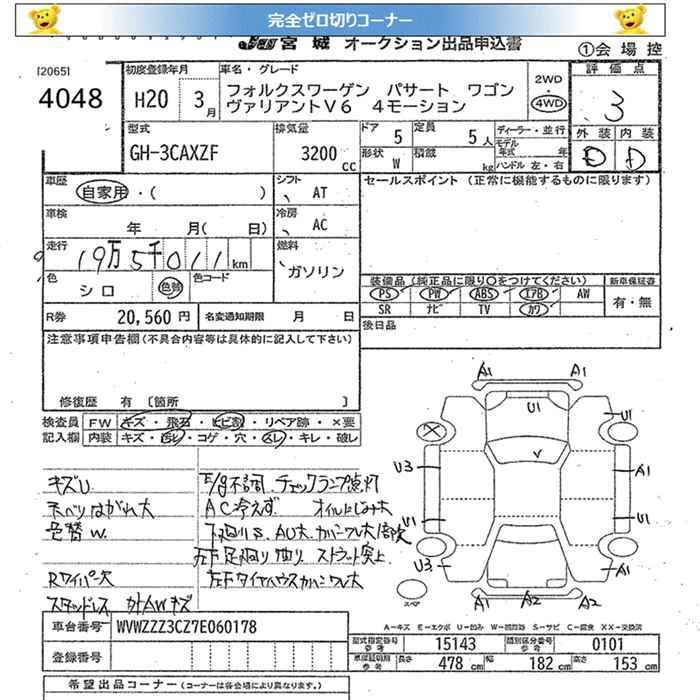 完全ゼロ切りコーナー
JU 宮城 オークション出品申込書
①会場控
[2065]
4048
初度登録年月
H20 3月
車名・グレード
フォルクスワーゲン パサート ワゴン
ヴァリアントV6 4モーション
2WD
4WD
評価点
3
外装 内装
D D
型式
GH-3CAXZF
排気量
3200 CC
ドア 5
定員 5人
形状 W
積載 kg
ディーラー・並行
モデル年式 年
ハンドル 左・右
車歴
自家用・( )
シフト AT
セールスポイント (正常に機能するものに限ります)
車検
年 月( 日)
冷房 AC
走行
19万5千011km
燃料
ガソリン
色
シロ 色替
色コード
装備品(純正品に限り○をつけてください)
新車保証書
PS PW ABS エアB AW
有・無
SR ナビ TV カワ
R券 20,560円
名変通知期限 月 日
後日品
注意事項申告欄(不具合内容等は具体的に記入して下さい)
修復歴 有 〔箇所 〕
検査員記入欄
FW キズ・飛石・ヒビ割・リペア跡・×要
内装 キズ・汚レ・コゲ・穴・スレ・キレ・破レ
キズU
天ベリはがれ大
色替W
Rワイパー欠
スタッドレス 外AWキズ
E/g不調 チェックランプ点灯
AC冷えず オイルにじみ大
左F足廻り ゆり ストラット突上
左Fタイヤハウスカバーワレ大
A1 A1
U1
U1
U3
A1
U1
U1
U3
A1
A1 A2 A2
スペア
A-キズ E-エクボ U-凹み W-補修跡 S-サビ C-腐食 XX-交換済
車台番号 WVWZZZ3CZ7E060178
登録番号
型式指定番号 参考 15143
類別区分番号 参考 0101
長さ 478cm 幅 182cm 高さ 153cm
希望出品コーナー (コーナーは各会場により異なります。)